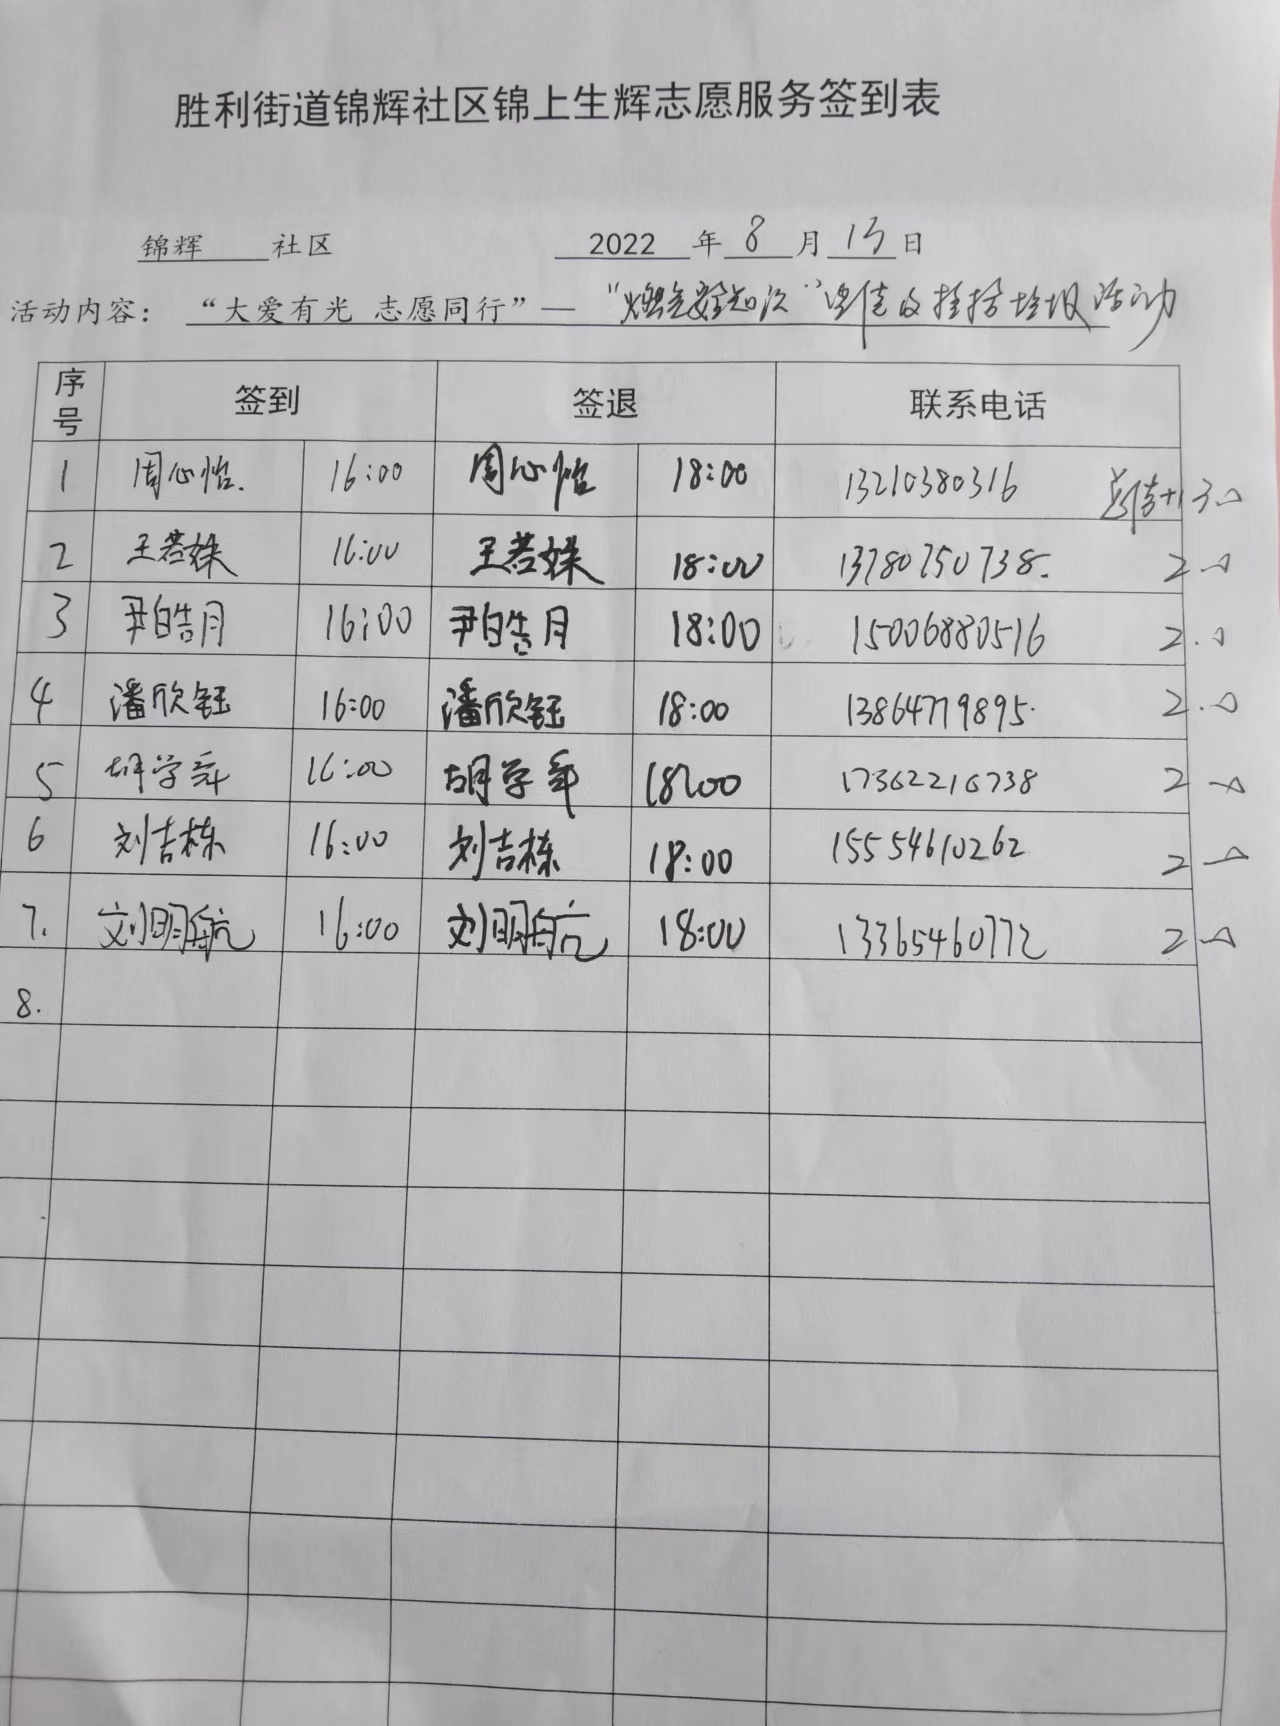 胜利街道锦辉社区锦上生辉志愿服务签到表
锦辉 社区 2022 年 8 月 15 日
活动内容： “大爱有光 志愿同行”— “燃气安全知识”宣传及捡拾垃圾活动
序号 签到 签退 联系电话
1 周心怡. 16:00 周心怡 18:00 13210380316 宣传+1 3.0
2 王若姝 16:00 王若姝 18:00 13780750738. 2.0
3 尹皓月 16:00 尹皓月 18:00 15006880516 2.0
4 潘欣钰 16:00 潘欣钰 18:00 13864779895. 2.0
5 胡学舜 16:00 胡学舜 18:00 17362216738 2.0
6 刘吉栋 16:00 刘吉栋 18:00 15554610262 2.0
7. 刘明航 16:00 刘明航 18:00 13365460772 2.0
8.